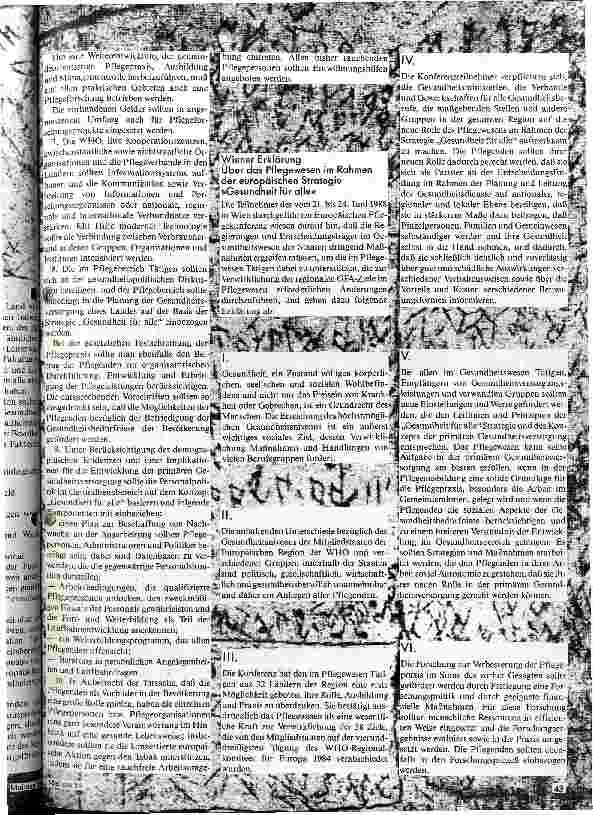 Um eine Weiterentwicklung der
Pflegepraxis, Ausbildung
und Management herbeizuführen, muß
auf allen praktischen Gebieten auch eine
Pflegeforschung betrieben werden.
Die vorhandenen Gelder sollten in ange-
messenem Umfang auch für Pflegefor-
schungsprojekte eingesetzt werden.
7. Die WHO, ihre Kooperationszentren,
zwischenstaatliche sowie nichtstaatliche Or-
ganisationen und die Pflegeverbände in den
Ländern sollten Informationssysteme auf-
bauen und die Kommunikation sowie Ver-
breitung von Informationen und For-
schungsergebnissen über nationale, regio-
nale und internationale Verbundnetze ver-
stärken. Mit Hilfe moderner Technologie
sollte die Verbindung zwischen Verbrauchern
und anderen Gruppen, Organisationen und
Institutionen intensiviert werden.
8. Die im Pflegebereich Tätigen sollten
sich an der gesundheitspolitischen Diskus-
sion beteiligen, und der Pflegebereich sollte
unbedingt in die Planung der Gesundheits-
versorgung eines Landes auf der Basis der
Strategie „Gesundheit für alle“ einbezogen
werden.
Bei der gesetzlichen Festschreibung der
Pflegepraxis sollte man ebenfalls den Bei-
trag der Pflegenden zur organisatorischen
Durchführung, Entwicklung und Beurtei-
lung der Pflegeleistungen berücksichtigen.
Die entsprechenden Vorschriften sollten so
ausgedruckt sein, daß die Möglichkeiten der
Pflegenden bezüglich der Befriedigung der
Gesundheitsbedürfnisse der Bevölkerung
gefördert werden.
9. Unter Berücksichtigung der demogra-
phischen Tendenzen und ihrer Implikatio-
nen für die Entwicklung der primären Ge-
sundheitsversorgung sollte die Personalpoli-
tik im Gesundheitsbereich auf dem Konzept
„Gesundheit für alle“ basieren und folgende
Komponenten mit einbeziehen:
— einen Plan zur Beschaffung von Nach-
wuchs an der Ausarbeitung sollten Pflege-
personen, Administratoren und Politiker be-
teiligt sein; dabei sind Datenbasen zu ver-
wenden, die die gegenwärtige Personalsitua-
tion darstellen;
— Arbeitsbedingungen, die qualifizierte
Pflegekräfte anlocken, den zweckmäßi-
gen Einsatz des Personals gewährleisten und
die Fort- und Weiterbildung als Teil der
Laufbahnentwicklung anerkennen;
— ein Weiterbildungsprogramm, das allen
Pflegenden offensteht;
— Beratung in persönlichen Angelegenhei-
ten und Laufbahnfragen.
10. In Anbetracht der Tatsache, daß die
Pflegenden als Vorbilder in der Bevölkerung
eine große Rolle spielen, haben die einzelnen
Pflegepersonen bzw. Pflegeorganisationen
eine ganz besondere Verantwortung im Hin-
blick auf eine gesunde Lebensweise; insbe-
sondere sollten sie die konzertierte europäi-
sche Aktion gegen den Tabak unterstützen,
indem sie für eine rauchfreie Arbeitsumge-
bung eintreten. Allen bisher rauchenden
Pflegepersonen sollten Entwöhnungshilfen
angeboten werden.
Wiener Erklärung
Über das Pflegewesen im Rahmen
der europäischen Strategie
»Gesundheit für alle«
Die Teilnehmer der vom 21. bis 24. Juni 1988
in Wien durchgeführten Europäischen Pfle-
gekonferenz weisen darauf hin, daß die Re-
gierungen und Entscheidungsträger im Ge-
sundheitswesen der Staaten dringend Maß-
nahmen ergreifen müssen, um die im Pflege-
wesen Tätigen dabei zu unterstützen, die zur
Verwirklichung der regionalen GFA-Ziele im
Pflegewesen erforderlichen Änderungen
durchzuführen, und geben dazu folgende
Erklärung ab:
I.
Gesundheit, ein Zustand völligen körperli-
chen, seelischen und sozialen Wohlbefin-
dens und nicht nur das Freisein von Krank-
heit oder Gebrechen, ist ein Grundrecht des
Menschen. Die Erreichung des höchstmögli-
chen Gesundheitsniveaus ist ein äußerst
wichtiges soziales Ziel, dessen Verwirkli-
chung Maßnahmen und Handlungen von
vielen Berufsgruppen fordert.
II.
Die anhaltenden Unterschiede bezüglich des
Gesundheitsstatus der Mitgliedstaaten der
Europäischen Region der WHO und ver-
schiedener Gruppen innerhalb der Staaten
sind politisch, gesellschaftlich, wirtschaft-
lich und gesundheitsberuflich unannehmbar
und daher ein Anliegen aller Pflegenden.
III.
Die Konferenz hat den im Pflegewesen Täti-
gen aus 32 Ländern der Region eine erste
Möglichkeit geboten, ihre Rolle, Ausbildung
und Praxis zu überdenken. Sie bestätigt aus-
drücklich das Pflegewesen als eine wesentli-
che Kraft zur Verwirklichung der 38 Ziele,
die von den Mitgliedstaaten auf der vierund-
dreißigsten Tagung des WHO-Regional-
komitees für Europa 1984 verabschiedet
wurden.
IV.
Die Konferenzteilnehmer verpflichten sich,
die Gesundheitsministerien, die Verbände
und Gewerkschaften für alle Gesundheitsbe-
rufe, die maßgebenden Stellen und andere
Gruppen in der gesamten Region auf die
neue Rolle des Pflegewesens im Rahmen der
Strategie „Gesundheit für alle“ aufmerksam
zu machen. Die Pflegenden sollten ihrer
neuen Rolle dadurch gerecht werden, daß sie
sich als Partner an der Entscheidungsfin-
dung im Rahmen der Planung und Leitung
der Gesundheitsdienste auf nationaler, re-
gionaler und lokaler Ebene beteiligen, daß
sie in stärkerem Maße dazu beitragen, daß
Einzelpersonen, Familien und Gemeinwesen
selbständiger werden und ihre Gesundheit
selbst in die Hand nehmen, und dadurch,
daß sie schließlich deutlich und zuverlässig
über gute und schädliche Auswirkungen ver-
schiedener Verhaltensweisen sowie über die
Vorteile und Kosten verschiedener Betreu-
ungsformen informieren.
V.
Bei allen im Gesundheitswesen Tätigen,
Empfängern von Gesundheitsversorgungs-
leistungen und verwandten Gruppen sollten
neue Einstellungen und Werte gefördert wer-
den, die den Leitlinien und Prinzipien der
„Gesundheit für alle“-Strategie und des Kon-
zepts der primären Gesundheitsversorgung
entsprechen. Das Pflegewesen kann seine
Aufgabe in der primären Gesundheitsver-
sorgung am besten erfüllen, wenn in der
Pflegeausbildung eine solide Grundlage für
die Pflegepraxis, besonders die Arbeit im
Gemeinwesen, gelegt wird und wenn die
Pflegenden die sozialen Aspekte der Ge-
sundheitsbedürfnisse berücksichtigen und
zu einem breiteren Verständnis der Entwick-
lung im Gesundheitsbereich gelangen. Es
sollten Strategien und Maßnahmen erarbei-
tet werden, die den Pflegenden in ihrer Ar-
beit soviel Autonomie zugestehen, daß sie ih-
rer neuen Rolle in der primären Gesund-
heitsversorgung gerecht werden können.
VI.
Die Forschung zur Verbesserung der Pflege-
praxis im Sinne des vorher Gesagten sollte
gefördert werden durch Festlegung eine For-
schungspolitik und durch geeignete finan-
zielle Maßnahmen. Für diese Forschung
sollten menschliche Ressourcen in effizien-
ter Weise eingesetzt und die Forschungser-
gebnisse evaluiert sowie in die Praxis umge-
setzt werden. Die Pflegenden sollten eben-
falls in den Forschungsprozeß einbezogen
werden.
43